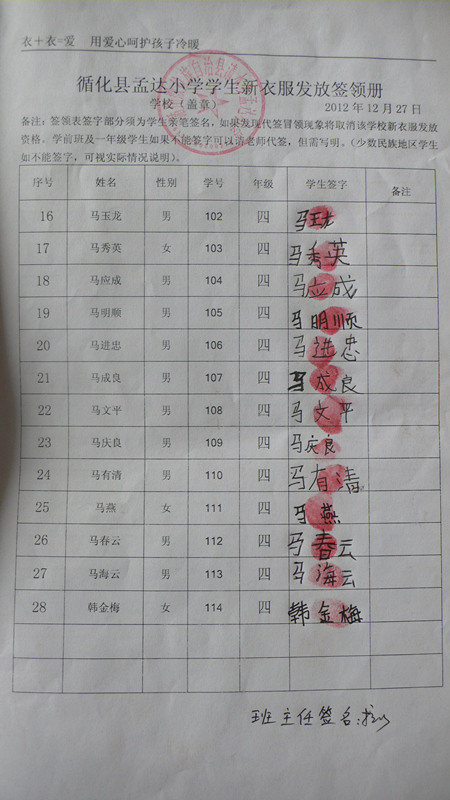 衣+衣=爱 用爱心呵护孩子冷暖
循化县孟达小学学生新衣服发放签领册
学校（盖章） 2012年12月27日
备注：签领表签字部分须为学生亲笔签名，如果发现代签冒领现象将取消该学校新衣服发放
资格。学前班及一年级学生如果不能签字可以请老师代签，但需写明。（少数民族地区学生
如不能签字，可视实际情况说明）。
序号 姓名 性别 学号 年级 学生签字 备注
16 马玉龙 男 102 四 马玉龙
17 马秀英 女 103 四 马秀英
18 马应成 男 104 四 马应成
19 马明顺 男 105 四 马明顺
20 马进忠 男 106 四 马进忠
21 马成良 男 107 四 马成良
22 马文平 男 108 四 马文平
23 马庆良 男 109 四 马庆良
24 马有清 男 110 四 马有清
25 马燕 女 111 四 马燕
26 马春云 男 112 四 马春云
27 马海云 男 113 四 马海云
28 韩金梅 女 114 四 韩金梅
班主任签名: